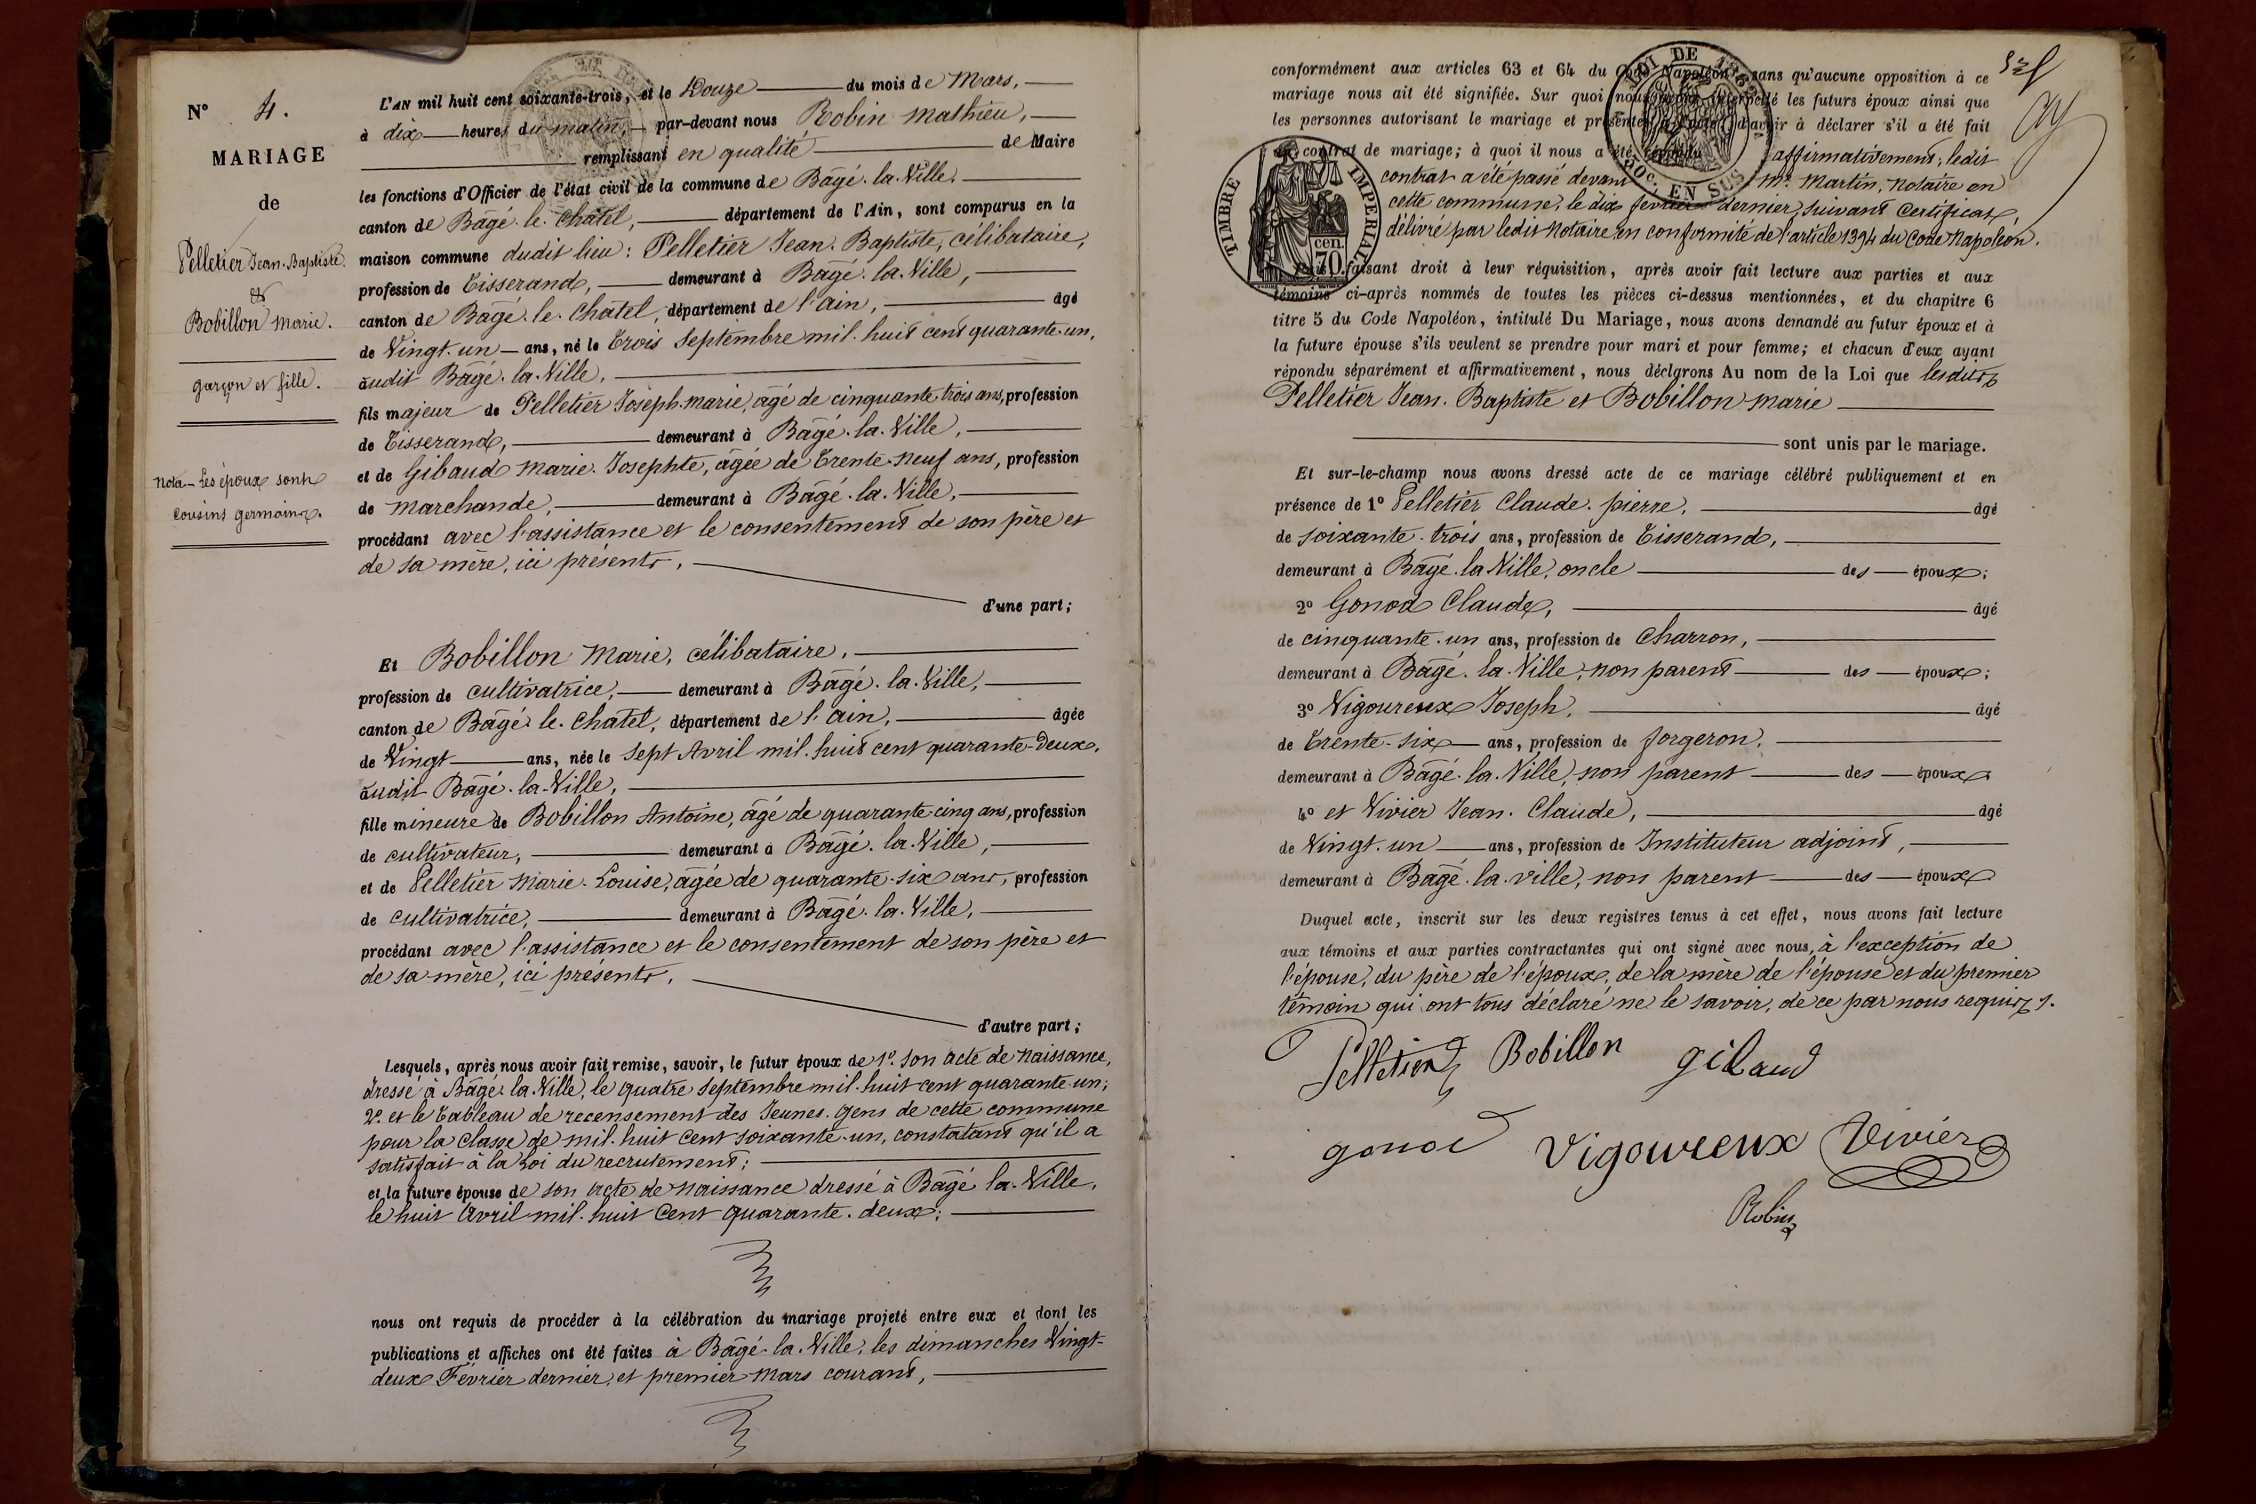 N° 4.
MARIAGE
de
Pelletier Jean-Baptiste
et
Bobillon Marie.
garçon et fille.
Nota - Les époux sont
cousins germains.
L'AN mil huit cent soixante-trois, et le Douze du mois de Mars,
à dix heures du matin, par-devant nous Robin Mathieu,
remplissant en qualité de Maire
les fonctions d'Officier de l'état civil de la commune de Bâgé-la-Ville,
canton de Bâgé-le-Châtel, département de l'Ain, sont comparus en la
maison commune dudit lieu : Pelletier Jean-Baptiste, célibataire,
profession de Tisserand, demeurant à Bâgé-la-Ville,
canton de Bâgé-le-Châtel, département de l'ain, âgé
de Vingt-un ans, né le Trois Septembre mil-huit cent quarante-un,
audit Bâgé-la-Ville,
fils majeur de Pelletier Joseph-marie, âgé de cinquante trois ans, profession
de Tisserand, demeurant à Bâgé-la-Ville,
et de Gibaud Marie-Josephte, âgée de Trente-neuf ans, profession
de Marchande, demeurant à Bâgé-la-Ville,
procédant avec l'assistance et le consentement de son père et
de sa mère, ici présents,
d'une part ;
Et Bobillon Marie, célibataire,
profession de cultivatrice, demeurant à Bâgé-la-Ville,
canton de Bâgé-le-Châtel, département de l'ain, âgée
de Vingt ans, née le Sept Avril mil-huit cent quarante-Deux,
audit Bâgé-la-Ville,
fille mineure de Bobillon Antoine, âgé de quarante-cinq ans, profession
de cultivateur, demeurant à Bâgé-la-Ville,
et de Pelletier Marie-Louise, âgée de quarante-six ans, profession
de cultivatrice, demeurant à Bâgé-la-Ville,
procédant avec l'assistance et le consentement de son père et
de sa mère, ici présents,
d'autre part ;
Lesquels, après nous avoir fait remise, savoir, le futur époux de 1°. son acte de naissance,
dressé à Bâgé-la-Ville, le quatre Septembre mil-huit cent quarante-un;
2°. et le Tableau de recensement des Jeunes-gens de cette commune
pour la classe de mil-huit cent soixante-un, constatant qu'il a
satisfait à la Loi du recrutement;
et la future épouse de son acte de naissance dressé à Bâgé-la-Ville,
le huit Avril mil-huit cent quarante-deux;
nous ont requis de procéder à la célébration du mariage projeté entre eux et dont les
publications et affiches ont été faites à Bâgé-la-Ville, les dimanches Vingt-
deux Février dernier, et premier Mars courant,
conformément aux articles 63 et 64 du Code Napoléon, sans qu'aucune opposition à ce
mariage nous ait été signifiée. Sur quoi nous avons interpellé les futurs époux ainsi que
les personnes autorisant le mariage et présentes à l'acte d'avoir à déclarer s'il a été fait
un contrat de mariage; à quoi il nous a été répondu affirmativement; ledit
contrat a été passé devant Me. Martin, notaire en
cette commune, le dix février dernier, suivant certificat,
délivré par ledit Notaire en conformité de l'article 1394 du Code Napoléon.
faisant droit à leur réquisition, après avoir fait lecture aux parties et aux
témoins ci-après nommés de toutes les pièces ci-dessus mentionnées, et du chapitre 6
titre 5 du Code Napoléon, intitulé Du Mariage, nous avons demandé au futur époux et à
la future épouse s'ils veulent se prendre pour mari et pour femme; et chacun d'eux ayant
répondu séparément et affirmativement, nous déclarons Au nom de la Loi que lesdits
Pelletier Jean-Baptiste et Bobillon Marie
sont unis par le mariage.
Et sur-le-champ nous avons dressé acte de ce mariage célébré publiquement et en
présence de 1° Pelletier Claude-pierre, âgé
de soixante-trois ans, profession de Tisserand,
demeurant à Bâgé-la-Ville, oncle des époux;
2° Gonod Claude, âgé
de cinquante-un ans, profession de Charron,
demeurant à Bâgé-la-Ville, non parent des époux;
3° Vigoureux Joseph, âgé
de Trente-six ans, profession de forgeron,
demeurant à Bâgé-la-Ville, non parent des époux
4° et Vivier Jean-Claude, âgé
de Vingt-un ans, profession de Instituteur adjoint,
demeurant à Bâgé-la-ville, non parent des époux
Duquel acte, inscrit sur les deux registres tenus à cet effet, nous avons fait lecture
aux témoins et aux parties contractantes qui ont signé avec nous, à l'exception de
l'épouse, du père de l'époux, de la mère de l'épouse et du premier
témoin qui ont tous déclaré ne le savoir, de ce par nous requis.
Pelletier Bobillon gibaud
gonod Vigoureux Vivier
Robin
TIMBRE IMPERIAL
70 cen.
LOI DE 1862
EN SUS